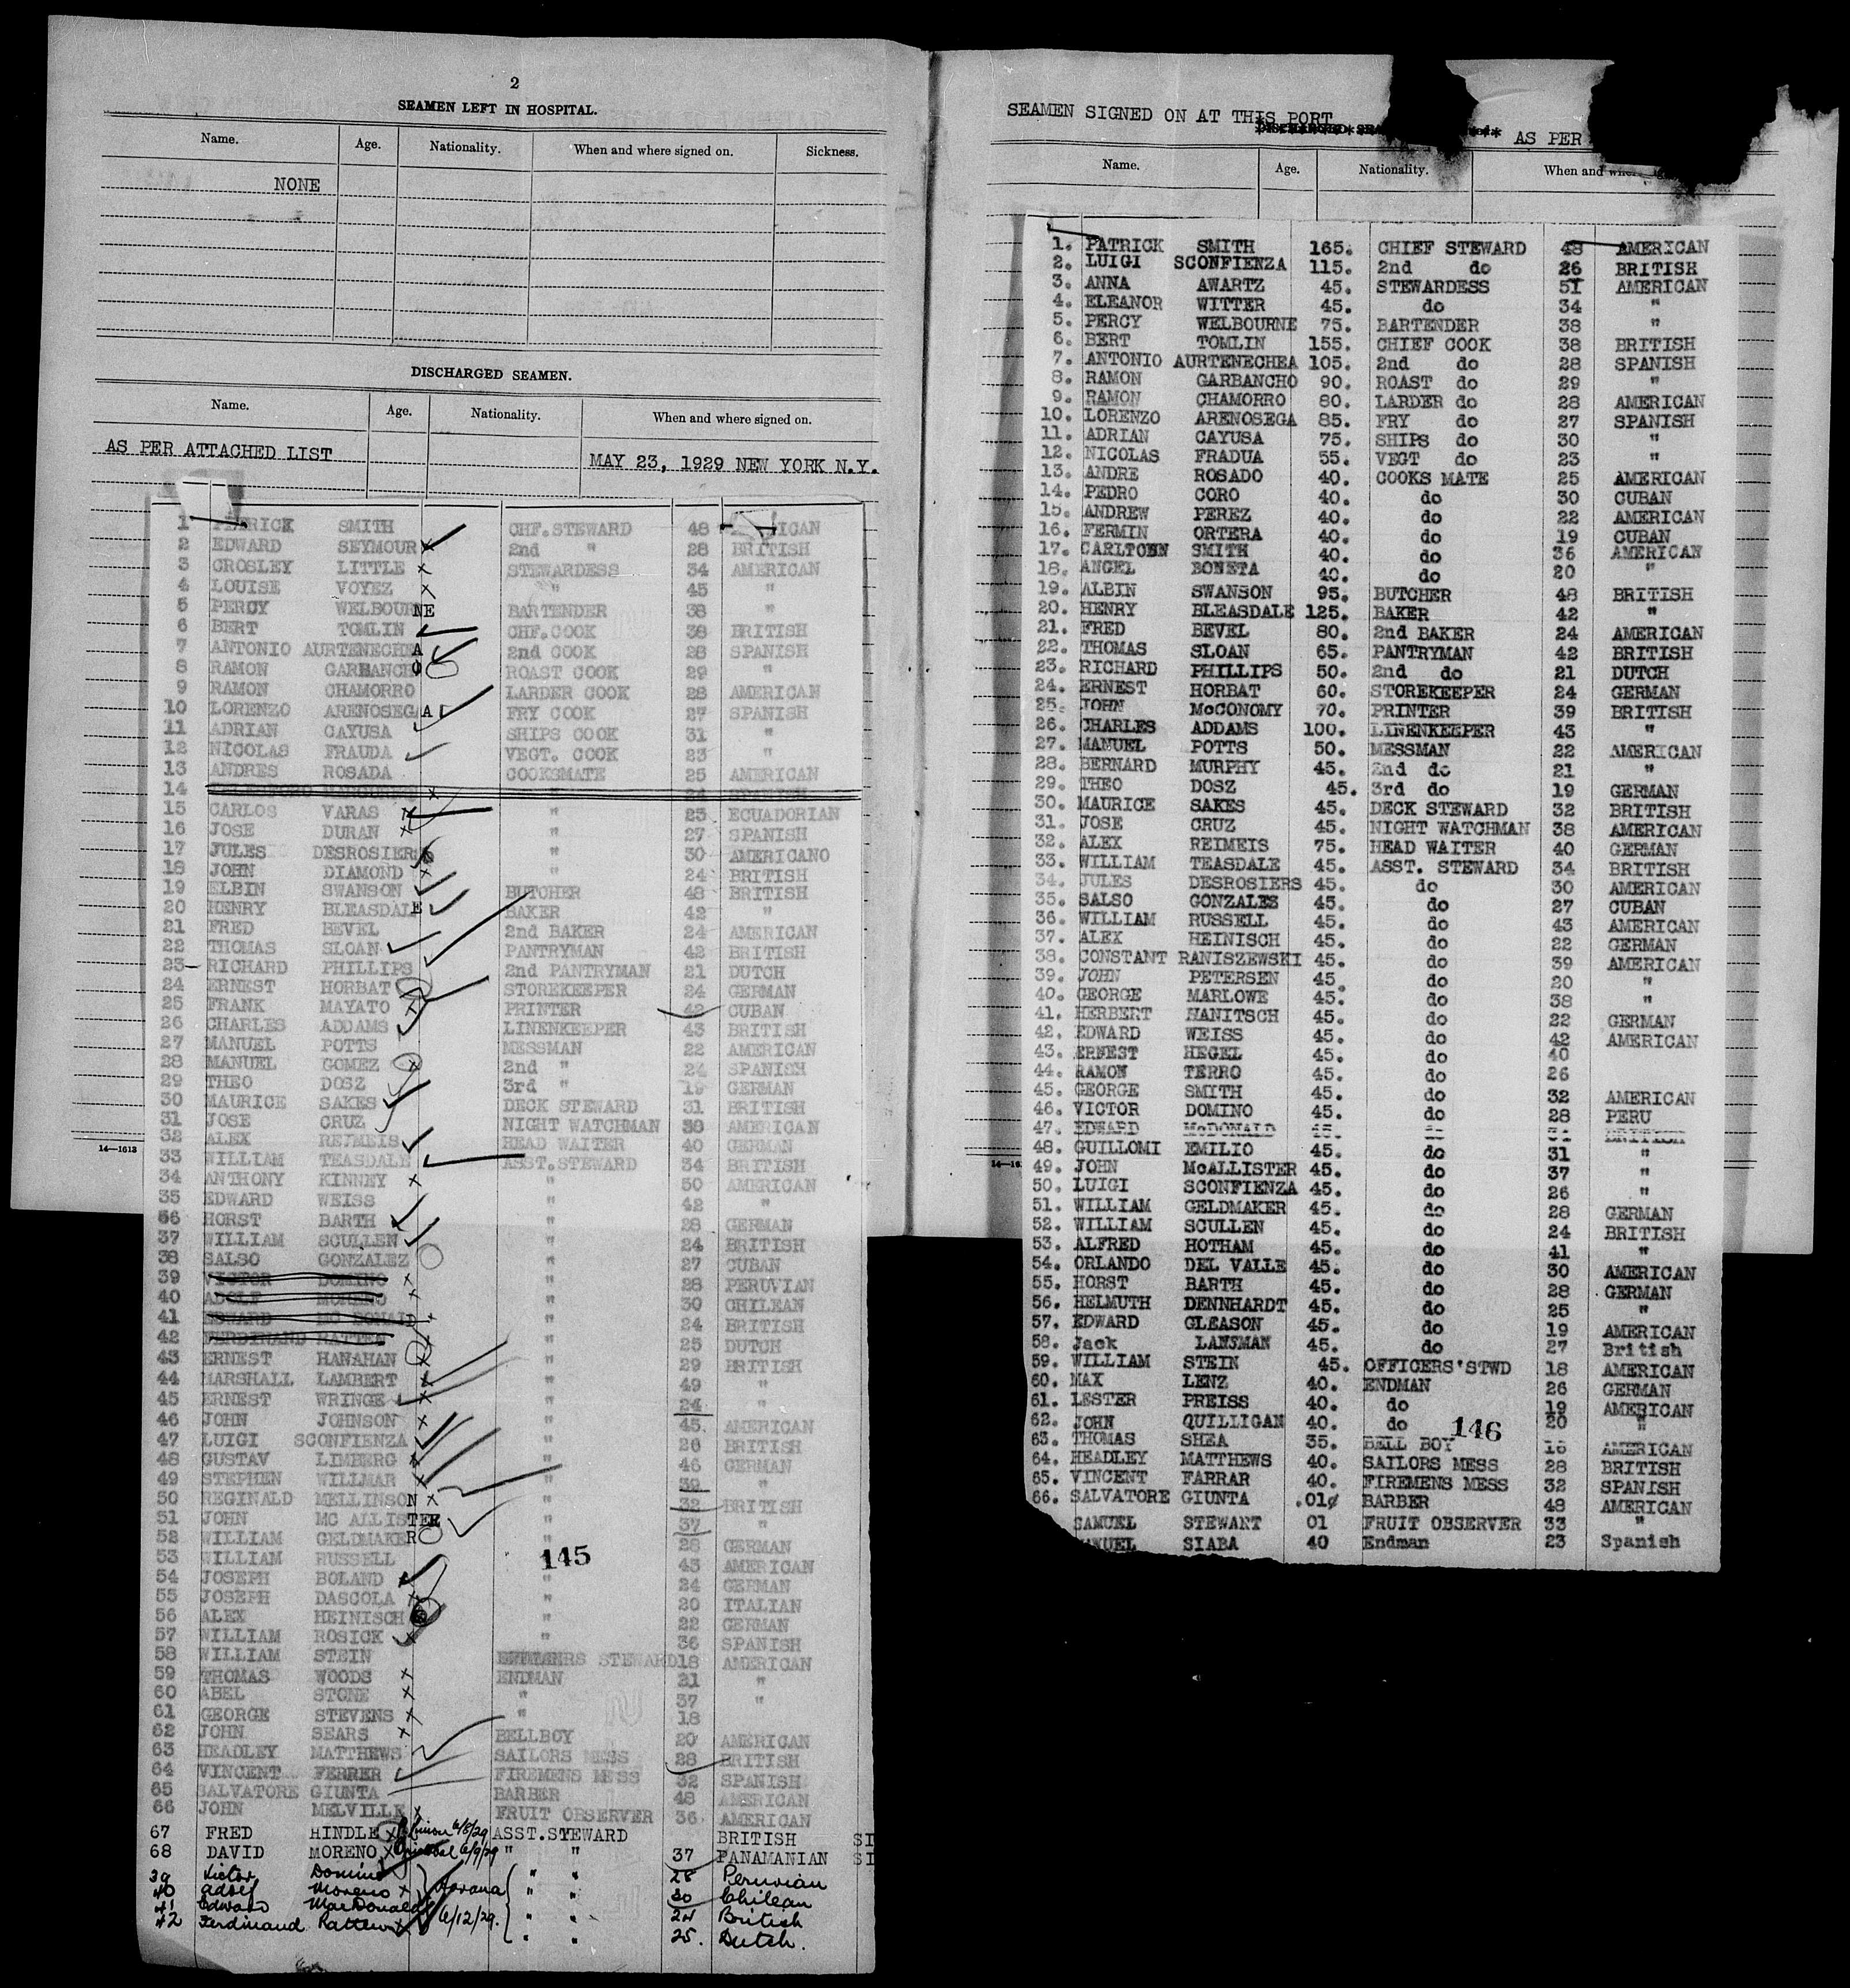 2
SEAMEN LEFT IN HOSPITAL.
Name. Age. Nationality. When and where signed on. Sickness.
NONE
DISCHARGED SEAMEN.
Name. Age. Nationality. When and where signed on.
AS PER ATTACHED LIST MAY 23, 1929 NEW YORK N.Y.
1 PATRICK SMITH CHF.STEWARD 48
2 EDWARD SEYMOUR 2nd " 28 BRITISH
3 CROSLEY LITTLE STEWARDESS 34 AMERICAN
4 LOUISE VOYEZ " 45 "
5 PERCY WELBOURNE BARTENDER 38 "
6 BERT TOMLIN CHF.COOK 38 BRITISH
7 ANTONIO AURTENECHEA 2nd COOK 28 SPANISH
8 RAMON GARBANCHO ROAST COOK 29 "
9 RAMON CHAMORRO LARDER COOK 28 AMERICAN
10 LORENZO ARENOSEGA FRY COOK 27 SPANISH
11 ADRIAN CAYUSA SHIPS COOK 31 "
12 NICOLAS FRAUDA VEGT. COOK 23 "
13 ANDRES ROSADA COOKSMATE 25 AMERICAN
14 24 SPANISH
15 CARLOS VARAS " 23 ECUADORIAN
16 JOSE DURAN " 27 SPANISH
17 JULES DESROSIERS " 30 AMERICANO
18 JOHN DIAMOND " 24 BRITISH
19 ELBIN SWANSON BUTCHER 48 BRITISH
20 HENRY BLEASDALE BAKER 42 "
21 FRED BEVEL 2nd BAKER 24 AMERICAN
22 THOMAS SLOAN PANTRYMAN 42 BRITISH
23 RICHARD PHILLIPS 2nd PANTRYMAN 21 DUTCH
24 ERNEST HORBAT STOREKEEPER 24 GERMAN
25 FRANK MAYATO PRINTER 42 CUBAN
26 CHARLES ADDAMS LINENKEEPER 43 BRITISH
27 MANUEL POTTS MESSMAN 22 AMERICAN
28 MANUEL GOMEZ 2nd " 24 SPANISH
29 THEO DOSZ 3rd " 19 GERMAN
30 MAURICE SAKES DECK STEWARD 31 BRITISH
31 JOSE CRUZ NIGHT WATCHMAN 38 AMERICAN
32 ALEX REIMEIS HEAD WAITER 40 GERMAN
33 WILLIAM TEASDALE ASST.STEWARD 34 BRITISH
34 ANTHONY KINNEY " 50 AMERICAN
35 EDWARD WEISS " 42 "
36 HORST BARTH " 28 GERMAN
37 WILLIAM SCULLEN " 24 BRITISH
38 SALSO GONZALEZ " 27 CUBAN
39 VICTOR DOMINO " 28 PERUVIAN
40 ADOLF MORENO " 30 CHILEAN
41 EDWARD MC DONALD " 24 BRITISH
42 FERDINAND RATTEN " 25 DUTCH
43 ERNEST HANAHAN " 29 BRITISH
44 MARSHALL LAMBERT " 49 "
45 ERNEST WRINGE " 24 "
46 JOHN JOHNSON " 45 AMERICAN
47 LUIGI SCONFIENZA " 26 BRITISH
48 GUSTAV LIMBERG " 46 GERMAN
49 STEPHEN WILLMAR " 39 "
50 REGINALD MELLINSON " 32 BRITISH
51 JOHN MC ALLISTER " 37 "
52 WILLIAM GELDMAKER " 28 GERMAN
53 WILLIAM RUSSELL 145 43 AMERICAN
54 JOSEPH BOLAND " 24 GERMAN
55 JOSEPH DASCOLA " 20 ITALIAN
56 ALEX HEINISCH " 22 GERMAN
57 WILLIAM ROSICK " 36 SPANISH
58 WILLIAM STEIN STEWARD 18 AMERICAN
59 THOMAS WOODS ENDMAN 21 "
60 ABEL STONE " 37 "
61 GEORGE STEVENS " 18
62 JOHN SEARS BELLBOY 20 AMERICAN
63 HEADLEY MATTHEWS SAILORS MESS 28 BRITISH
64 VINCENT FERRER FIREMENS MESS 32 SPANISH
65 SALVATORE GIUNTA BARBER 48 AMERICAN
66 JOHN MELVILLE FRUIT OBSERVER 36 AMERICAN
67 FRED HINDLE 6/8/29 ASST.STEWARD BRITISH SI
68 DAVID MORENO Cristobal 6/9/29 " " 37 PANAMANIAN SI
39 Victor Domino " " 28 Peruvian
40 Adolf Moreno Havana " " 30 Chilean
41 Edward MacDonald 6/12/29. " " 24 British
42 Ferdinand Ratten " " 25. Dutch.
14—1613
SEAMEN SIGNED ON AT THIS PORT AS PER
Name. Age. Nationality. When and where
1. PATRICK SMITH 165. CHIEF STEWARD 48 AMERICAN
2. LUIGI SCONFIENZA 115. 2nd do 26 BRITISH
3. ANNA AWARTZ 45. STEWARDESS 51 AMERICAN
4. ELEANOR WITTER 45. do 34 "
5. PERCY WELBOURNE 75. BARTENDER 38 "
6. BERT TOMLIN 155. CHIEF COOK 38 BRITISH
7. ANTONIO AURTENECHEA 105. 2nd do 28 SPANISH
8. RAMON GARBANCHO 90. ROAST do 29 "
9. RAMON CHAMORRO 80. LARDER do 28 AMERICAN
10. LORENZO ARENOSEGA 85. FRY do 27 SPANISH
11. ADRIAN CAYUSA 75. SHIPS do 30 "
12. NICOLAS FRADUA 55. VEGT do 23 "
13. ANDRE ROSADO 40. COOKS MATE 25 AMERICAN
14. PEDRO CORO 40. do 30 CUBAN
15. ANDREW PEREZ 40. do 22 AMERICAN
16. FERMIN ORTERA 40. do 19 CUBAN
17. CARLTOEN SMITH 40. do 36 AMERICAN
18. ANGEL BONETA 40. do 20 "
19. ALBIN SWANSON 95. BUTCHER 48 BRITISH
20. HENRY BLEASDALE 125. BAKER 42 "
21. FRED BEVEL 80. 2nd BAKER 24 AMERICAN
22. THOMAS SLOAN 65. PANTRYMAN 42 BRITISH
23. RICHARD PHILLIPS 50. 2nd do 21 DUTCH
24. ERNEST HORBAT 60. STOREKEEPER 24 GERMAN
25. JOHN McCONOMY 70. PRINTER 39 BRITISH
26. CHARLES ADDAMS 100. LINENKEEPER 43 "
27. MANUEL POTTS 50. MESSMAN 22 AMERICAN
28. BERNARD MURPHY 45. 2nd do 21 "
29. THEO DOSZ 45. 3rd do 19 GERMAN
30. MAURICE SAKES 45. DECK STEWARD 32 BRITISH
31. JOSE CRUZ 45. NIGHT WATCHMAN 38 AMERICAN
32. ALEX REIMEIS 75. HEAD WAITER 40 GERMAN
33. WILLIAM TEASDALE 45. ASST. STEWARD 34 BRITISH
34. JULES DESROSIERS 45. do 30 AMERICAN
35. SALSO GONZALES 45. do 27 CUBAN
36. WILLIAM RUSSELL 45. do 43 AMERICAN
37. ALEX HEINISCH 45. do 22 GERMAN
38. CONSTANT RANISZEWSKI 45. do 39 AMERICAN
39. JOHN PETERSEN 45. do 20 "
40. GEORGE MARLOWE 45. do 38 "
41. HERBERT HANITSCH 45. do 22 GERMAN
42. EDWARD WEISS 45. do 42 AMERICAN
43. ERNEST HEGEL 45. do 40
44. RAMON TERRO 45. do 26
45. GEORGE SMITH 45. do 32 AMERICAN
46. VICTOR DOMINO 45. do 28 PERU
47. EDWARD McDONALD 45. BRITISH
48. GUILLOMI EMILIO 45. do 31 "
49. JOHN McALLISTER 45. do 37 "
50. LUIGI SCONFIENZA 45. do 26 "
51. WILLIAM GELDMAKER 45. do 28 GERMAN
52. WILLIAM SCULLEN 45. do 24 BRITISH
53. ALFRED HOTHAM 45. do 41 "
54. ORLANDO DEL VALLE 45. do 30 AMERICAN
55. HORST BARTH 45. do 28 GERMAN
56. HELMUTH DENNHARDT 45. do 25 "
57. EDWARD GLEASON 45. do 19 AMERICAN
58. Jack LANSMAN 45. do 27 British
59. WILLIAM STEIN 45. OFFICERS'STWD 18 AMERICAN
60. MAX LENZ 40. ENDMAN 26 GERMAN
61. LESTER PREISS 40. do 19 AMERICAN
62. JOHN QUILLIGAN 40. do 146 20 "
63. THOMAS SHEA 35. BELL BOY 16 AMERICAN
64. HEADLEY MATTHEWS 40. SAILORS MESS 28 BRITISH
65. VINCENT FARRAR 40. FIREMENS MESS 32 SPANISH
66. SALVATORE GIUNTA .01¢ BARBER 48 AMERICAN
SAMUEL STEWART 01 FRUIT OBSERVER 33 "
SIABA 40 Endman 23 Spanish